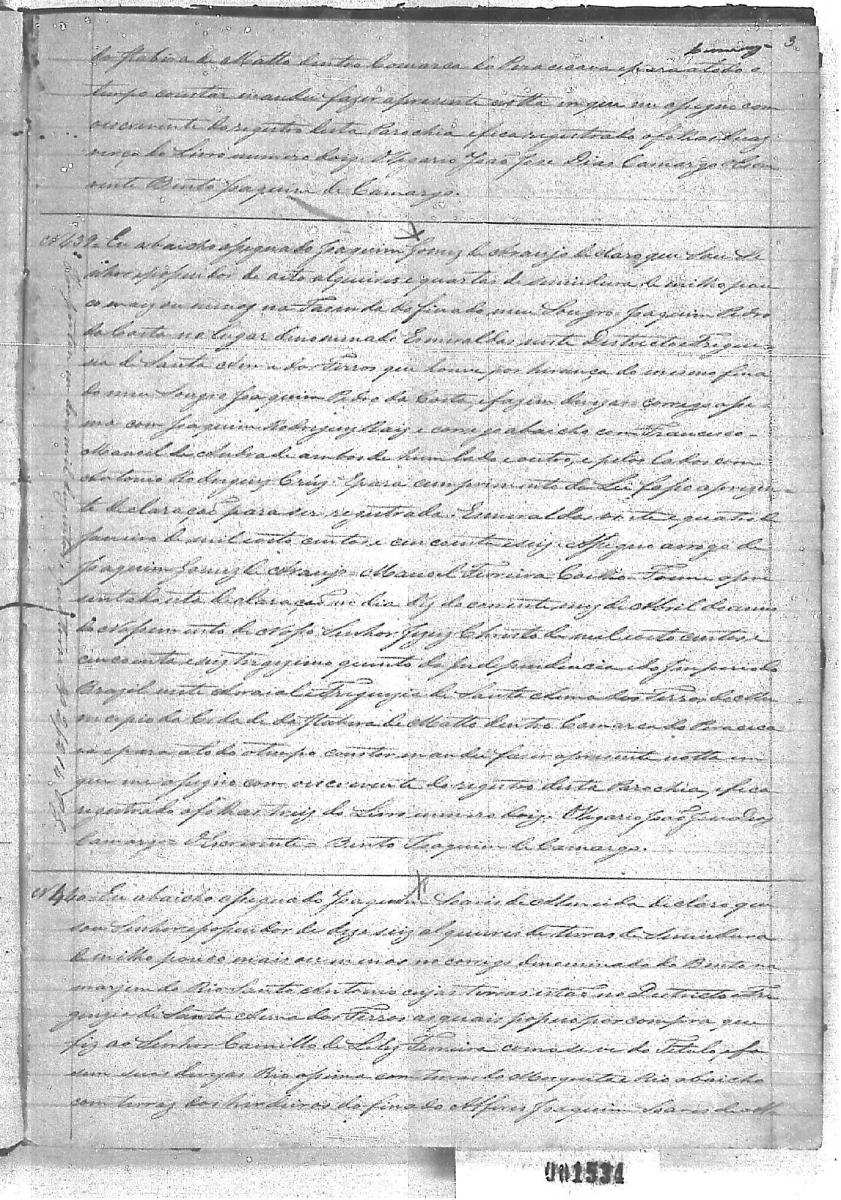 3
da Itabira de Matto dentro Comarca do Piracicava e para a todo o
tempo constar mandei fazer a presente notta em que me asigno com
o escrevente do registro desta Parochia e fica registrado a folhas duas
verço do Livro numero doiz. O Vigario João Jose Dias Camargo Escre
vente Bento Joaquim de Camargo.
N 439. Eu abaicho asignado Joaquim Gomez de Araujo declaro que Sou Se
nhor e posuidor de oito alqueires e quartas de semeadura de milho pou
co mais ou menos na Fazenda do finado meu Sougro Joaquim Pedro
da Costa no lugar denominado Esmeraldas neste Districto e Fregue
sia de Santa Anna dos Ferros que houve por herança do mesmo fina
do meu Sougro Joaquim Pedro da Costa, e fazem divizas corrego asi
ma com Joaquim Rodriguez Maiz e corrego abaicho com Francisco
Manoel de Andrade ambos de hum lado e outro, e pelos lados com
Antonio Rodriguez Crúz. E para cumprimento da Lei faço a prezen
te declaração para ser registrada. Esmeraldas vinte e quatro de
Janeiro de mil oito centos e cincoenta e seiz. Asigno arrogo de
Joaquim Gomez de Araujo = Manoel Ferreira Coelho. Foi me apre
sentada esta declaração em dia do corrente mez de Abril do anno
do Nascimento de Noso Senhor Jezuz Christo de mil oito centos e
cincoenta e seiz trigezimo quinto da Independencia e do Imperio do
Brazil neste Arraial e Freguezia de Santa Anna dos Ferros do Mu
nicipio da Cidade da Itabira de Matto dentro Comarca do Piracica
va e para a todo o tempo constar mandei fazer a presente notta em
que me asigno com o escrevente do registro desta Parochia, e fica
registrado a folhas treiz do Livro numero doiz. O Vigario João Jose Dias
Camargo = Escrevente = Bento Joaquim de Camargo.
N 440. Eu abaicho asignado Joaquim Soares de Almeida declaro que
sou Senhor e posuidor de deze seiz alqueires de terras de Semeadura
de milho pouco mais ou menos no corrego denominado do Bento na
marjem do Rio Santo Antonio cujas terras estão no Districto e Fre
guezia de Santa Anna dos Ferros as quais posuo por compra que
fiz ao Senhor Camillo de Leliz Ferreira como se ve do Titulo, e fa
sem suas divizas Rio asima com terras do e Rio abaicho
com terras dos herdeiros do finado Alferes Joaquim Soares de Al
001534